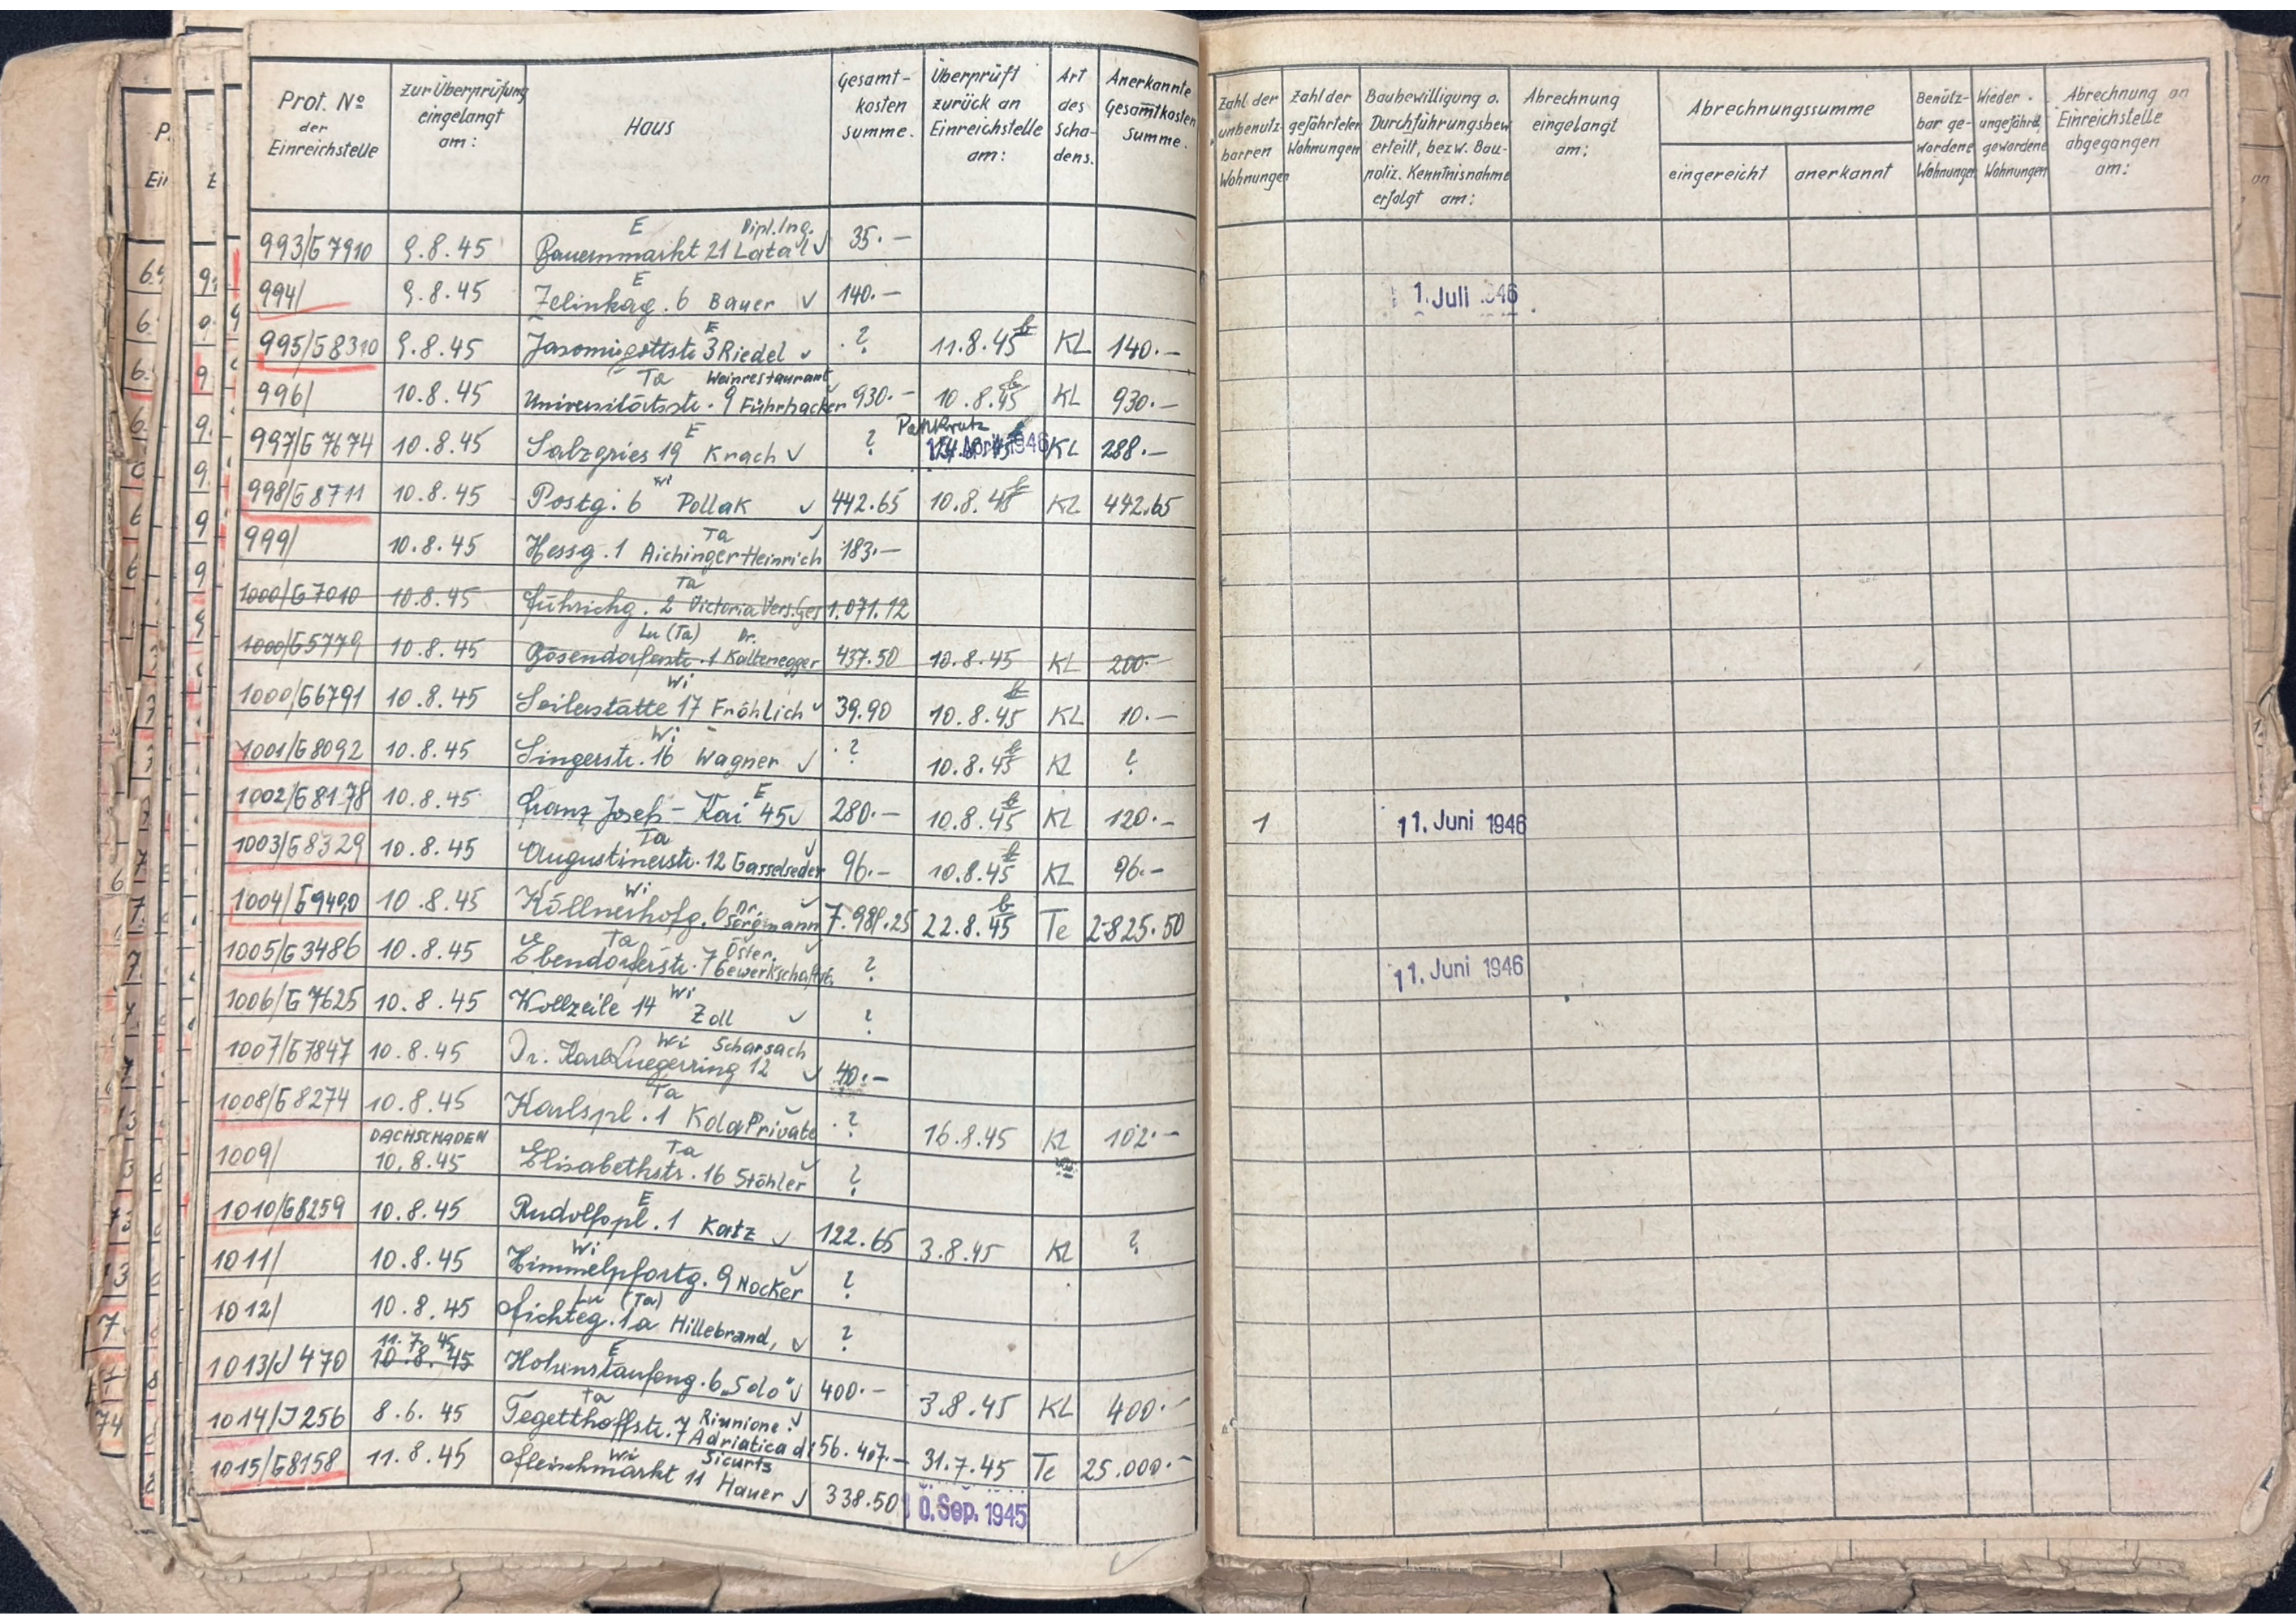 Prot. Nº der Einreichstelle | zur Überprüfung eingelangt am: | Haus | Gesamt-kosten summe. | Überprüft zurück an Einreichstelle am: | Art des Scha-dens. | Anerkannte Gesamtkosten Summe.
Zahl der unbenutz-barren Wohnungen | Zahl der gefährteten Wohnungen | Baubewilligung o. Durchführungsbew. erteilt, bezw. Bau-poliz. Kenntnisnahme erfolgt am: | Abrechnung eingelangt am: | Abrechnungssumme eingereicht | anerkannt | Benütz-bar ge-wordene Wohnungen | Wieder ungefährd. gewordene Wohnungen | Abrechnung an Einreichstelle abgegangen am:
993/G7910 9.8.45 Bauernmarkt 21 E Dipl. Ing. Latal √ 35.—
994/ 9.8.45 Zelinkag. 6 E Bauer √ 140.— 1. Juli 1946
995/G8310 9.8.45 Jasomirgottstr. 3 E Riedel √ ? 11.8.45 KL 140.—
996/ 10.8.45 Universitätsstr. 9 Ta Weinrestaurant Führhacker 930.— 10.8.45 KL 930.—
997/G7674 10.8.45 Salzgries 19 E Krach √ ? April 1946 KL 288.—
998/G8711 10.8.45 Postg. 6 Wi Pollak √ 442.65 10.8.45 KL 442.65
999/ 10.8.45 Hessg. 1 Ta Aichinger Heinrich √ 183.—
1000/G7010 10.8.45 Führichg. 2 Ta Victoria Vers. Ges 1.071.12
1000/G5779 10.8.45 Bösendorferstr. 1 Lu (Ta) Dr. Kaltenegger 437.50 10.8.45 KL 200.—
1000/G6791 10.8.45 Seilerstätte 17 Wi Fröhlich √ 39.90 10.8.45 KL 10.—
1001/G8092 10.8.45 Singerstr. 16 Wi Wagner √ ? 10.8.45 KL ?
1002/G8178 10.8.45 Franz Josefs-Kai 45 E √ 280.— 10.8.45 KL 120.— 1 11. Juni 1946
1003/G8329 10.8.45 Augustinerstr. 12 Ta Gasselseder √ 96.— 10.8.45 KL 96.—
1004/G9490 10.8.45 Köllnerhofg. 6 Wi Dr. Sorgmann √ 7.981.25 22.8.45 Te 2.825.50
1005/G3486 10.8.45 Ebendorferstr. 7 Ta Öster. Gewerkschaftsb. √ ? 11. Juni 1946
1006/G7625 10.8.45 Wollzeile 14 Wi Zoll √ ?
1007/G7847 10.8.45 Dr. Karl Luegerring 12 Wi Scharsach √ 40.—
1008/G8274 10.8.45 Karlspl. 1 Ta Kola Private √ ? 16.8.45 KL 102.—
1009/ DACHSCHADEN 10.8.45 Elisabethstr. 16 Ta Stöhler √ ?
1010/G8259 10.8.45 Rudolfspl. 1 E Katz √ 122.65 3.8.45 KL ?
1011/ 10.8.45 Himmelpfortg. 9 Wi Nocker √ ?
1012/ 10.8.45 Fichteg. 1a Lu (Ta) Hillebrand, √ ?
1013/J470 11.7.45 10.8.45 Hohenstaufeng. 6 E „Solo" √ 400.— 3.8.45 KL 400.—
1014/J256 8.6.45 Tegetthoffstr. 7 Ta Riunione Adriatica di Sicurts √ 56.407.— 31.7.45 Te 25.000.—
1015/G8158 11.8.45 Fleischmarkt 11 Wi Hauer √ 338.50 10. Sep. 1945